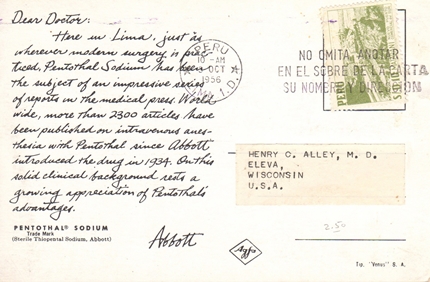 Dear Doctor:
Here in Lima, just as
wherever modern surgery is prac-
ticed, Pentothal Sodium has been
the subject of an impressive series
of reports in the medical press. World
wide, more than 2300 articles have
been published on intravenous anes-
thesia with Pentothal since Abbott
introduced the drug in 1934. On this
solid clinical background rests a
growing appreciation of Pentothal's
advantages.
Abbott
PENTOTHAL® SODIUM
Trade Mark
(Sterile Thiopental Sodium, Abbott)
PERU
10-AM
OCT
1956
1.D.
NO OMITA ANOTAR
EN EL SOBRE DE LA CARTA
SU NOMBRE Y DIRECCION
PERU
HENRY C. ALLEY, M. D.
ELEVA,
WISCONSIN
U.S.A.
2.50
Agfa
Tip. "Venus" S. A.